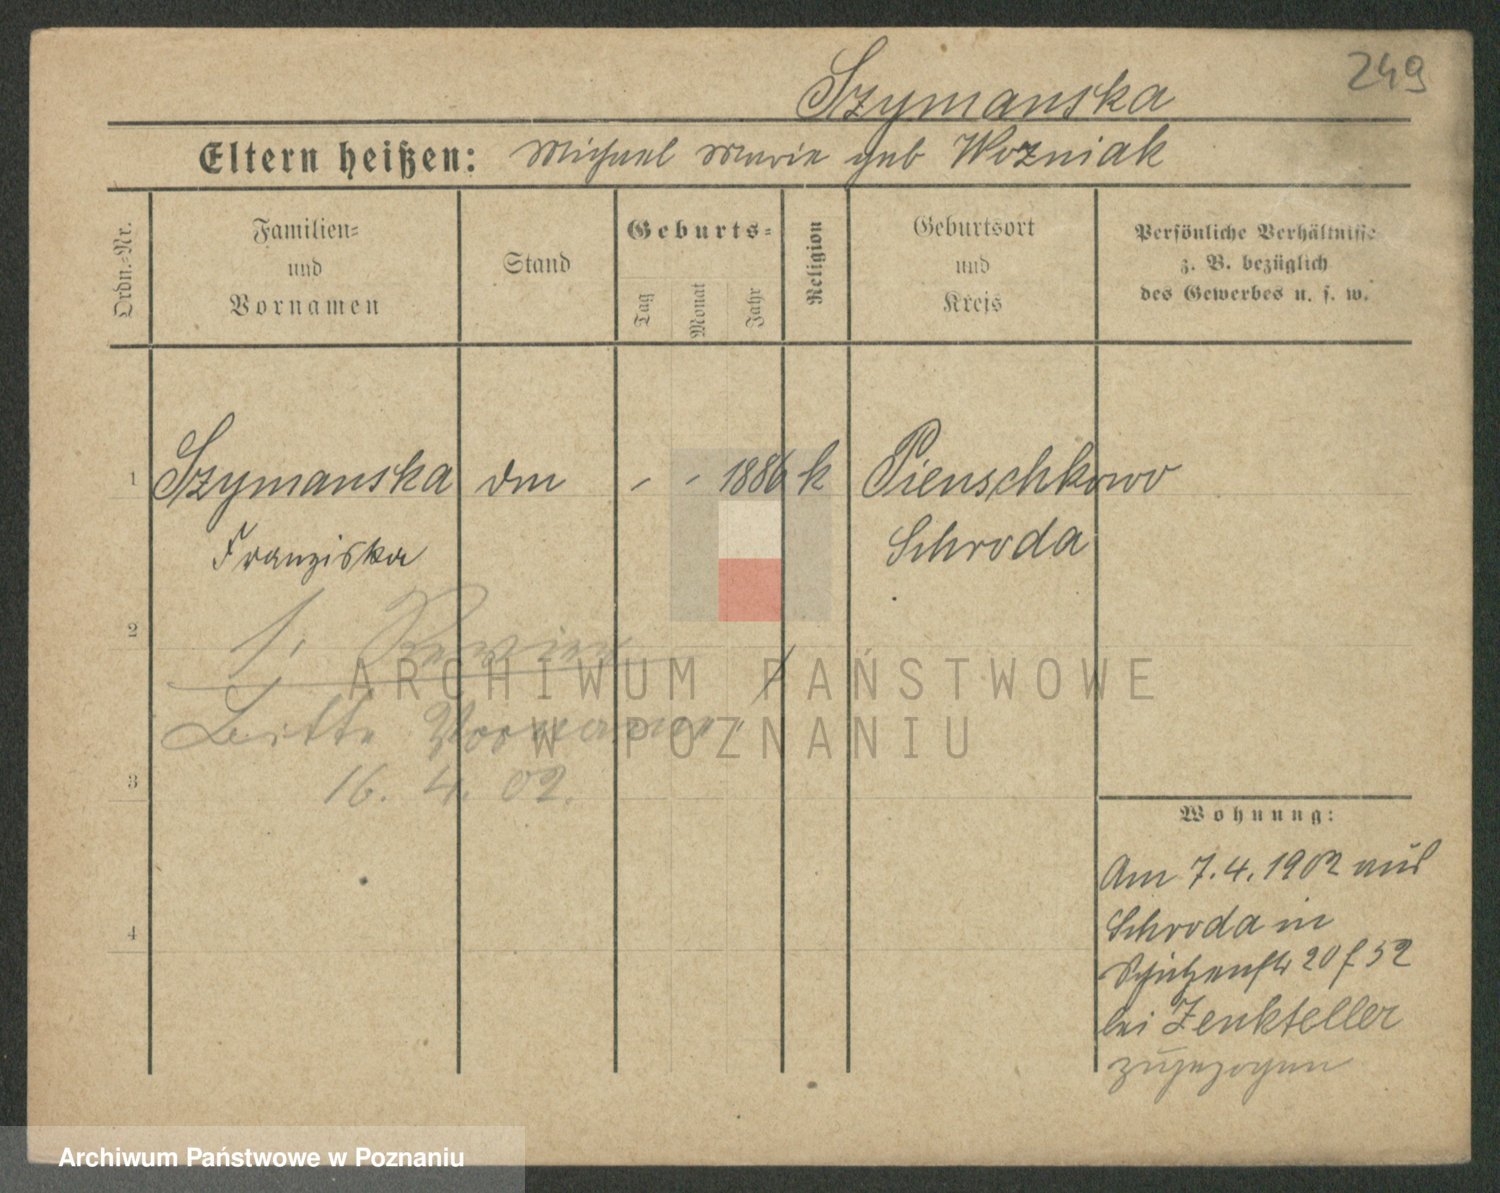 249
Szymanska
Eltern heißen: Michael Marie geb Wozniak
Ordn.-Nr.
Familien-
und
Vornamen
Stand
Geburts-
Tag
Monat
Jahr
Religion
Geburtsort
und
Kreis
Persönliche Verhältnisse
z. B. bezüglich
des Gewerbes u. s. w.
1 Szymanska - - 1886 k Pienschkowo
Franziska Schroda
2
Bitte Vorname
3
16. 4. 02.
4
Wohnung:
Am 7.4.1902 aus
Schroda in
Schützenstr 20 f 52
bei Zenkteller
zugezogen
ARCHIWUM PAŃSTWOWE
W POZNANIU
Archiwum Państwowe w Poznaniu